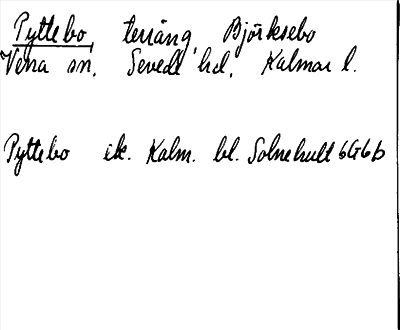 Pyttebo, terräng, Björksebo
Vena sn, Sevede hd, Kalmar l.
Pyttebo ek. Kalm. bl. Solnehult 6G6b